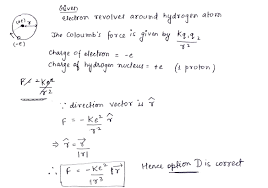 Given
electron revolves around hydrogen atom
The Coloumb's force is given by Kq₁q₂/r²
Charge of electron = -e
Charge of hydrogen nucleus = +e (1 proton)
(+e) r
(-e)
F = -Ke²/r²
∵ direction vector is r̂
F = -Ke²/r² r̂
⇒ r̂ = r⃗/|r|
∴ F = -Ke²/|r|³ r⃗
Hence option D is correct